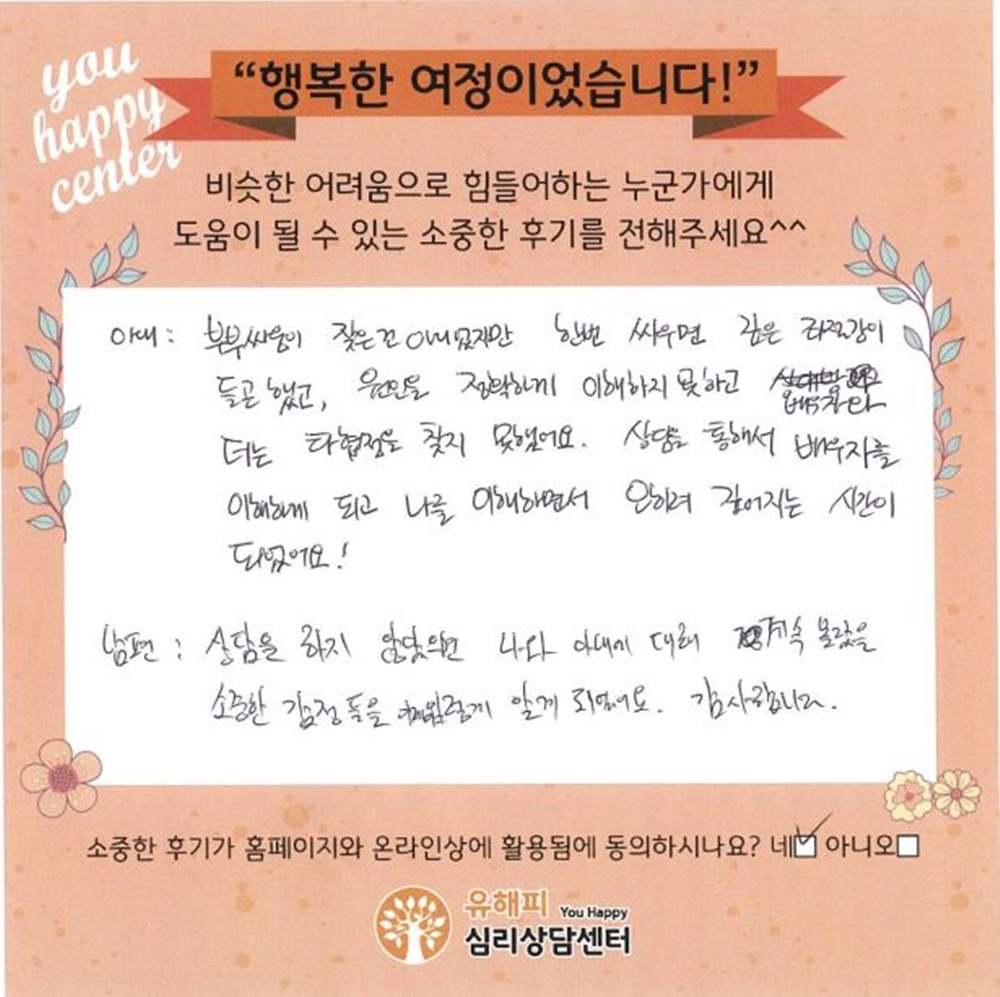 you
happy
center
“행복한 여정이었습니다!”
비슷한 어려움으로 힘들어하는 누군가에게
도움이 될 수 있는 소중한 후기를 전해주세요^^
아내 : 부부싸움이 잦은건 아니였지만 한번 싸우면 깊은 좌절감이
들곤 했고, 원인을 정확하게 이해하지 못하고
더는 타협점을 찾지 못했어요. 상담을 통해서 배우자를
이해하게 되고 나를 이해하면서 오히려 깊어지는 시간이
되었어요!
남편 : 상담을 하지 않았으면 나와 아내에 대해 계속 몰랐을
소중한 감정들을 알게 되었어요. 감사합니다.
소중한 후기가 홈페이지와 온라인상에 활용됨에 동의하시나요? 네☑ 아니오☐
유해피 You Happy
심리상담센터